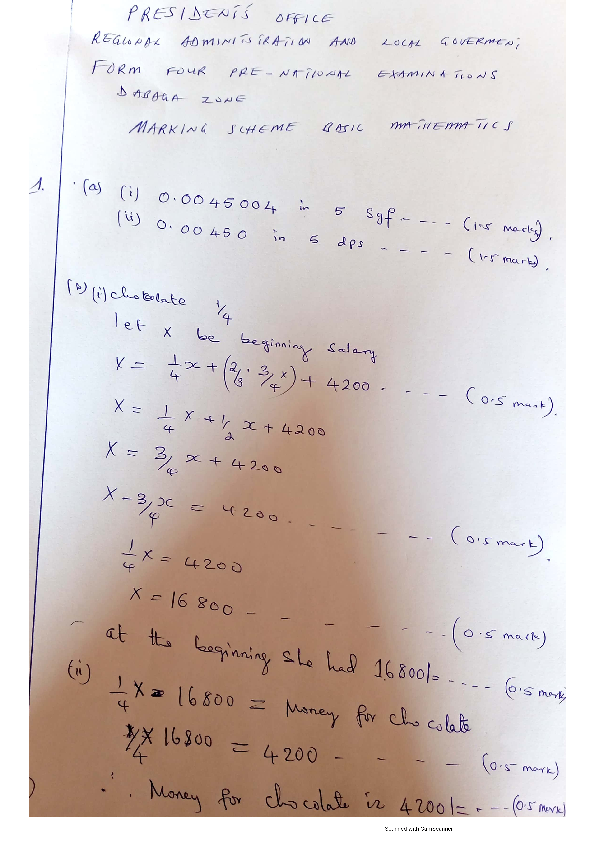 PRESIDENT'S OFFICE
REGIONAL ADMINISTRATION AND LOCAL GOVERMENT
FORM FOUR PRE-NATIONAL EXAMINATIONS
DABAGA ZONE
MARKING SCHEME BASIC MATHEMATICS
1. (a) (i) 0.0045004 in 5 sgf - - - - (1.5 marks).
(ii) 0.00450 in 5 dps - - - - (1.5 mark).
(b) (i) chocolate 1/4
let x be beginning salary
x = 1/4 x + (2/3 . 3/4 x) + 4200 . - - - (0.5 mark).
x = 1/4 x + 1/2 x + 4200
x = 3/4 x + 4200
x - 3/4 x = 4200 . - - - - - - . (0.5 mark).
1/4 x = 4200
x = 16 800 - - - - - . . (0.5 mark)
at the beginning she had 16800/= - - - - (0.5 mark)
(ii) 1/4 x = 16800 = Money for chocolate
1/4 x 16800 = 4200 - - - - (0.5 mark)
∴ Money for chocolate is 4200/= - - - (0.5 mark)
Scanned with CamScanner